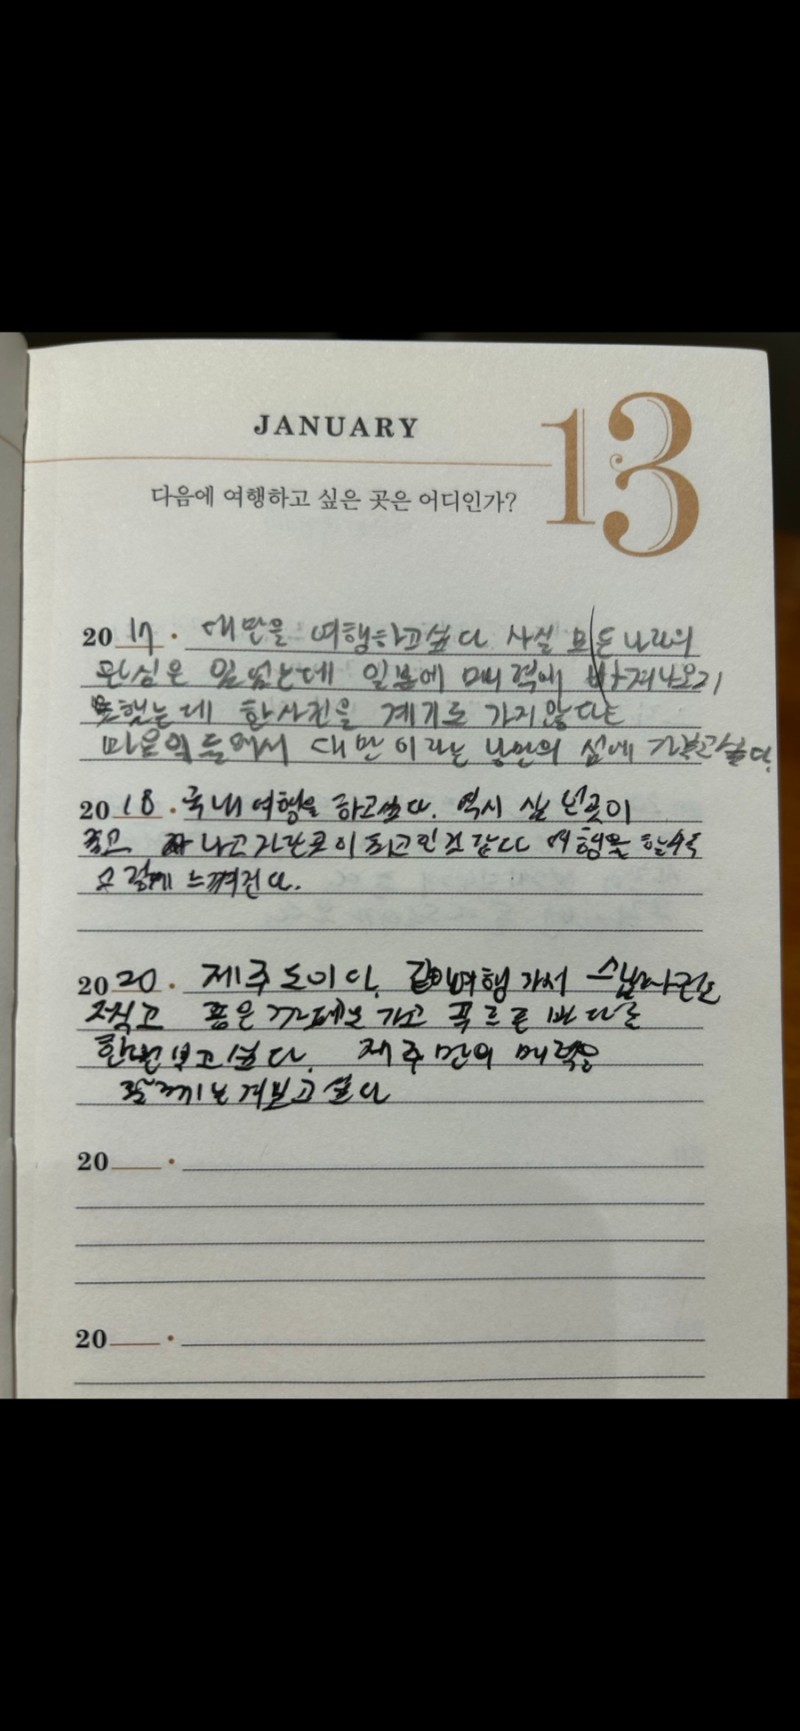 JANUARY 13
다음에 여행하고 싶은 곳은 어디인가?
2017 · 대만을 여행하고싶다 사실 모든 나라의
관심은 일본에 매력에 빠져나오지
못했는데 한사진을 계기로 가지않다는
마음이 들어서 대만이라는 낭만의 섬에 가보고싶다.
2018 · 국내여행을 하고싶다. 역시 집 이
좋고 여행을 할수록
느껴진다.
2020 · 제주도이다. 여행가서 스냅사진도
찍고 좋은 까페도 가고 푸르른 바다도
한번 보고싶다. 제주만의 매력을
느껴보고 싶다
20 ·
20 ·